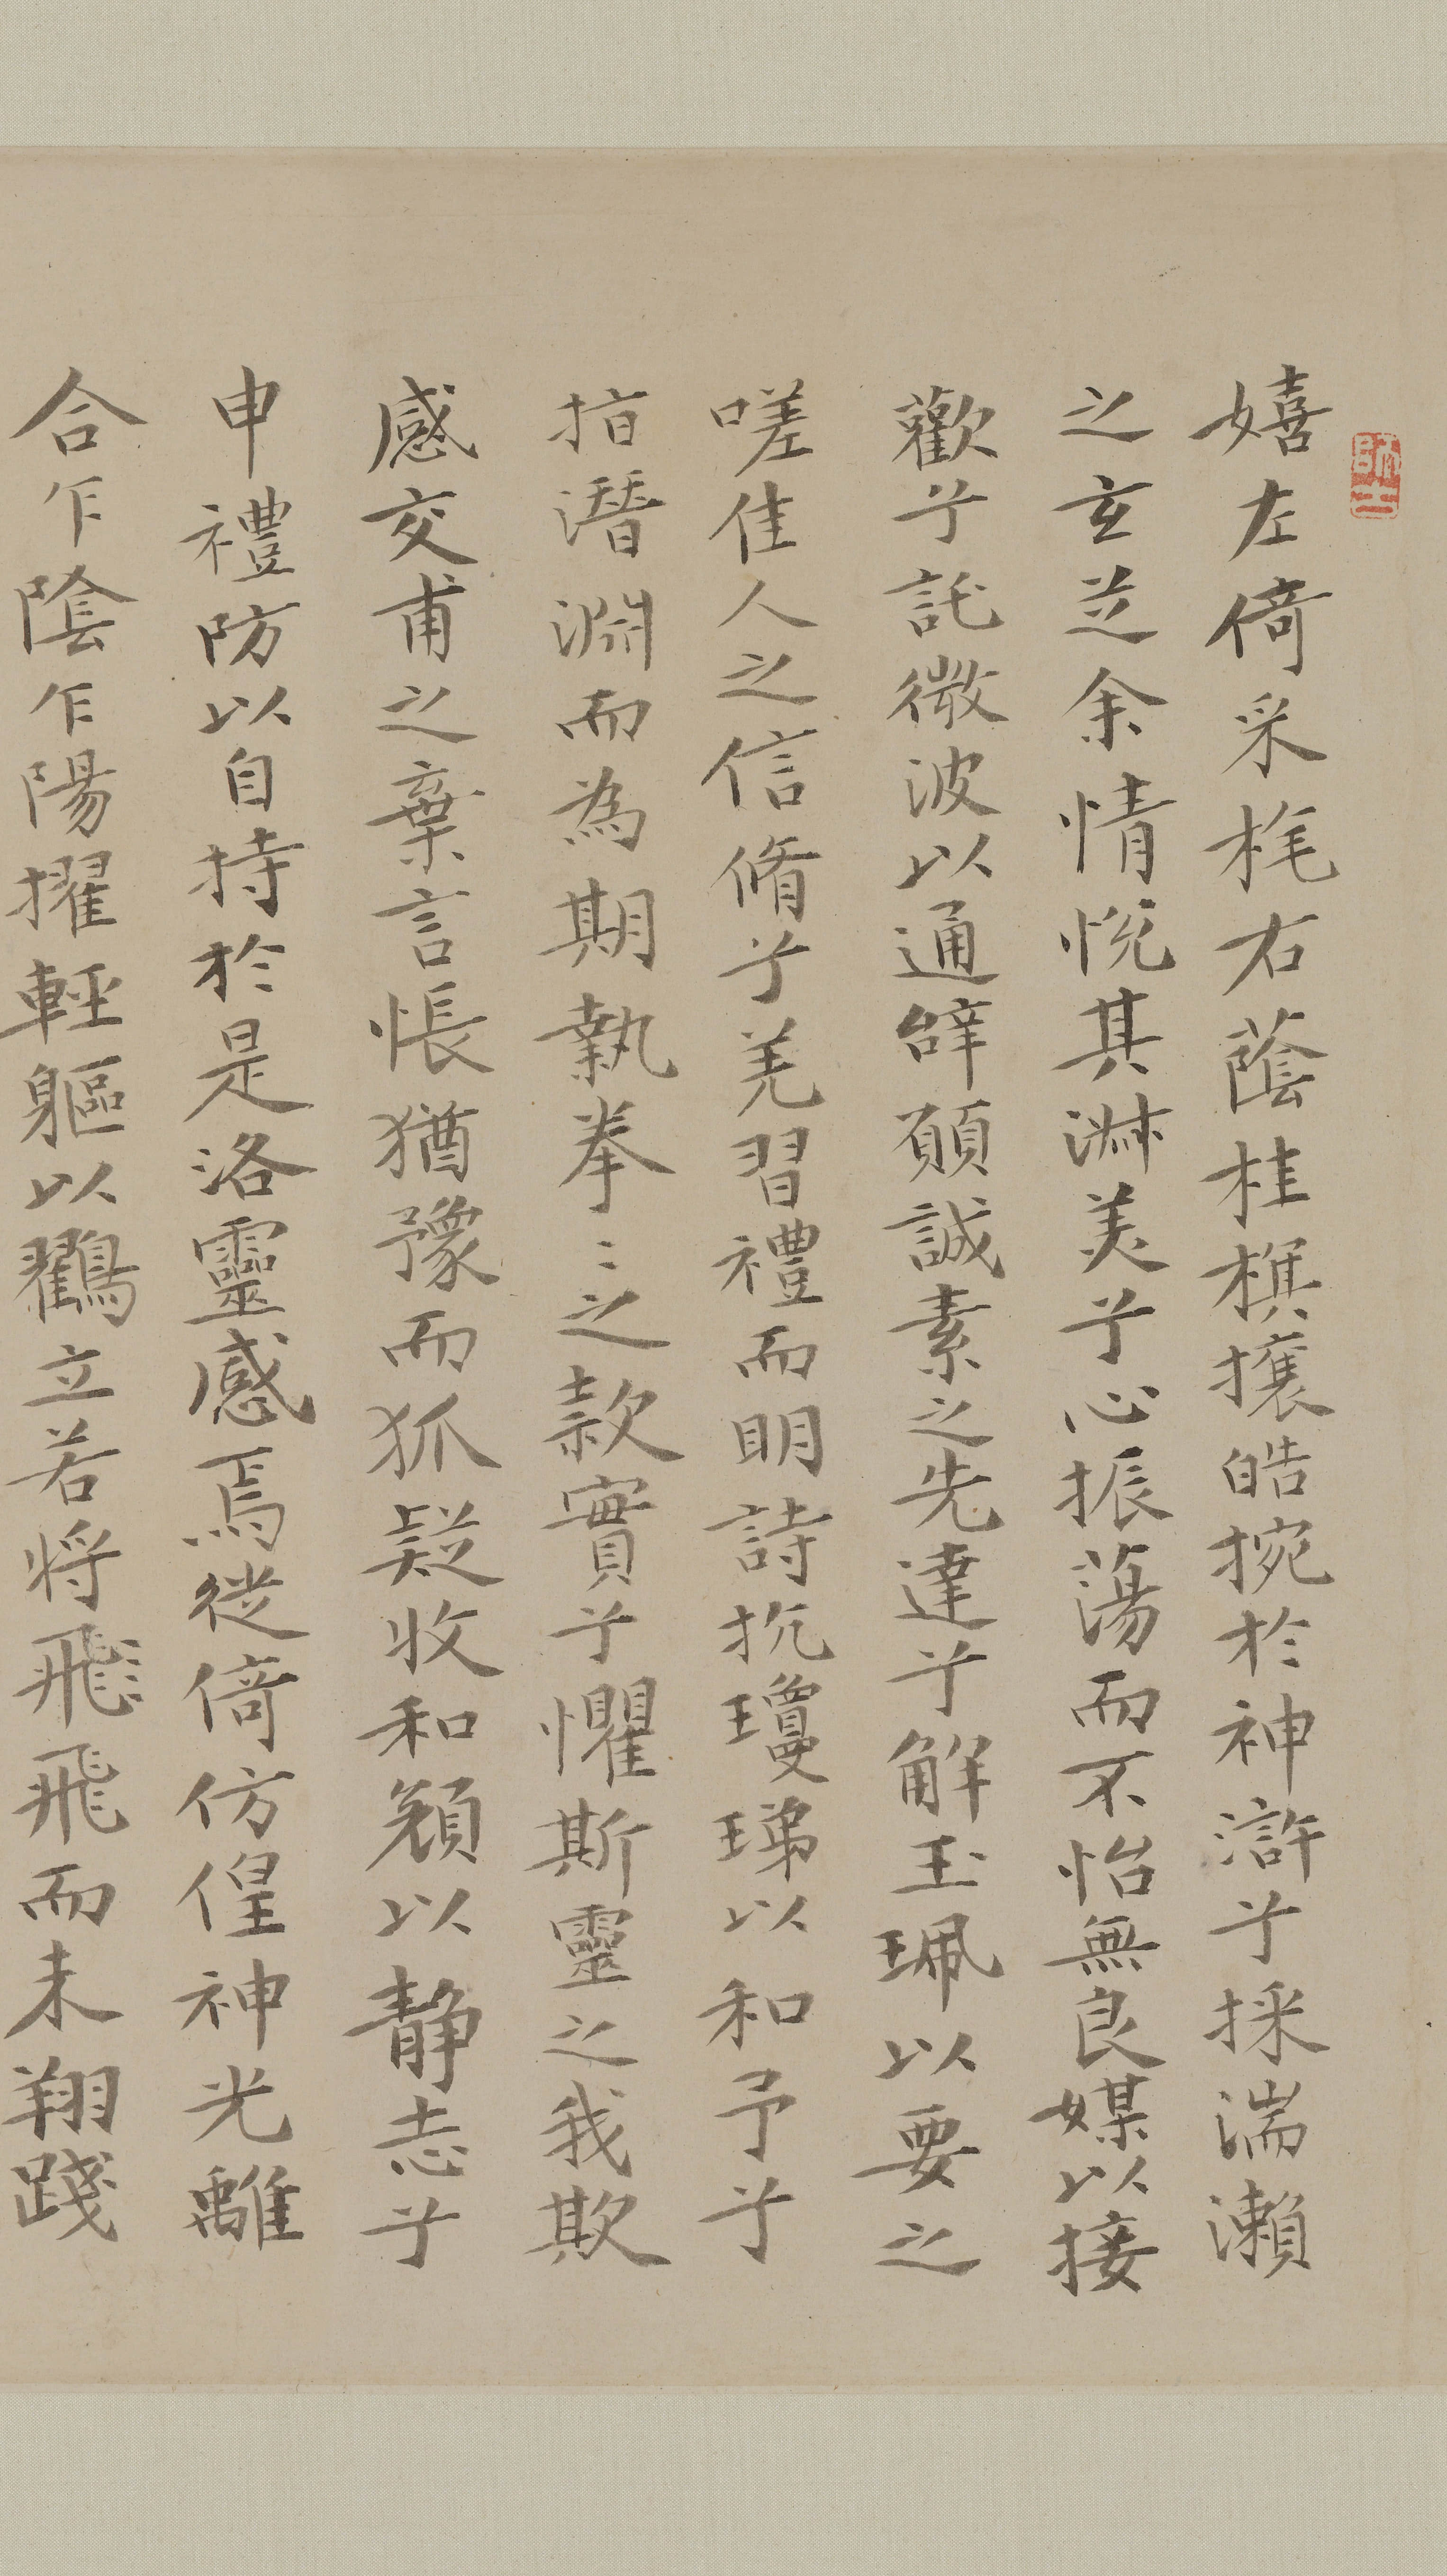 嬉左倚采旄右蔭桂旗攘皓捥於神滸兮採湍瀬
之玄芝余情悅其淋美兮心振蕩而不怡無良媒以接
歡兮託微波以通辭願誠素之先達兮解玉珮以要之
嗟佳人之信脩兮羌習禮而明詩抗瓊珶以和予兮
指潛淵而為期執拳〻之款實兮懼斯靈之我欺
感交甫之棄言悵猶豫而狐疑收和顏以静志兮
申禮防以自持於是洛靈感焉徙倚仿偟神光離
合乍陰乍陽擢輕軀以鸛立若將飛飛而未翔踐